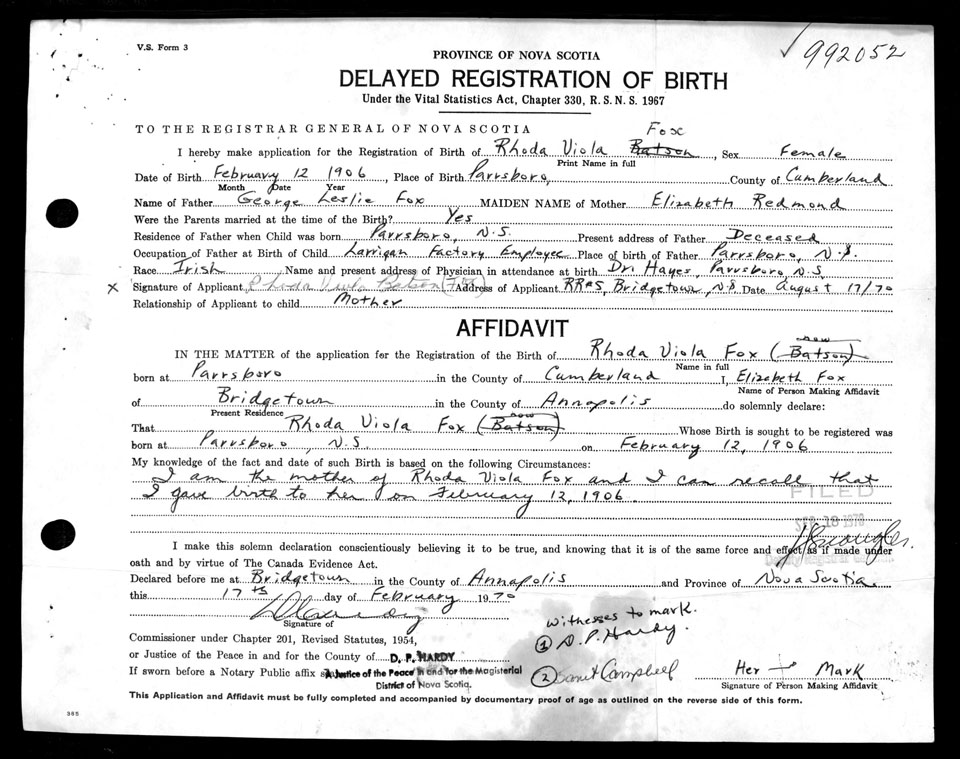 V.S. Form 3
992052
PROVINCE OF NOVA SCOTIA
DELAYED REGISTRATION OF BIRTH
Under the Vital Statistics Act, Chapter 330, R.S.N.S. 1967
TO THE REGISTRAR GENERAL OF NOVA SCOTIA
Fox
I hereby make application for the Registration of Birth of Rhoda Viola Batson, Sex Female
Print Name in full
Date of Birth February 12 1906, Place of Birth Parrsboro, County of Cumberland
Month Date Year
Name of Father George Leslie Fox MAIDEN NAME of Mother Elizabeth Redmond
Were the Parents married at the time of the Birth? Yes
Residence of Father when Child was born Parrsboro, N.S. Present address of Father Deceased
Occupation of Father at Birth of Child Larrigan Factory Employee Place of birth of Father Parrsboro, N.S.
Race Irish Name and present address of Physician in attendance at birth Dr. Hayes, Parrsboro, N.S.
x Signature of Applicant Rhoda Viola Batson (Fox) Address of Applicant RR#5, Bridgetown, N.S. Date August 17/70
Relationship of Applicant to child Mother
AFFIDAVIT
now
IN THE MATTER of the application for the Registration of the Birth of Rhoda Viola Fox (Batson)
Name in full
born at Parrsboro in the County of Cumberland I, Elizabeth Fox
Name of Person Making Affidavit
of Bridgetown in the County of Annapolis do solemnly declare:
Present Residence
now
That Rhoda Viola Fox (Batson) Whose Birth is sought to be registered was
born at Parrsboro, N.S. on February 12, 1906
My knowledge of the fact and date of such Birth is based on the following Circumstances:
I am the mother of Rhoda Viola Fox and I can recall that
I gave birth to her on February 12, 1906.
FILED
SEP 10 1970
I make this solemn declaration conscientiously believing it to be true, and knowing that it is of the same force and effect as if made under
oath and by virtue of The Canada Evidence Act.
Declared before me at Bridgetown in the County of Annapolis and Province of Nova Scotia
this 17th day of February 1970
Signature of
Commissioner under Chapter 201, Revised Statutes, 1954,
or Justice of the Peace in and for the County of D. P. HARDY
If sworn before a Notary Public affix
A Justice of the Peace in and for the Magisterial
District of Nova Scotia.
witnesses to mark.
① D.P. Hardy.
② Campbell
Her + Mark
Signature of Person Making Affidavit
This Application and Affidavit must be fully completed and accompanied by documentary proof of age as outlined on the reverse side of this form.
385